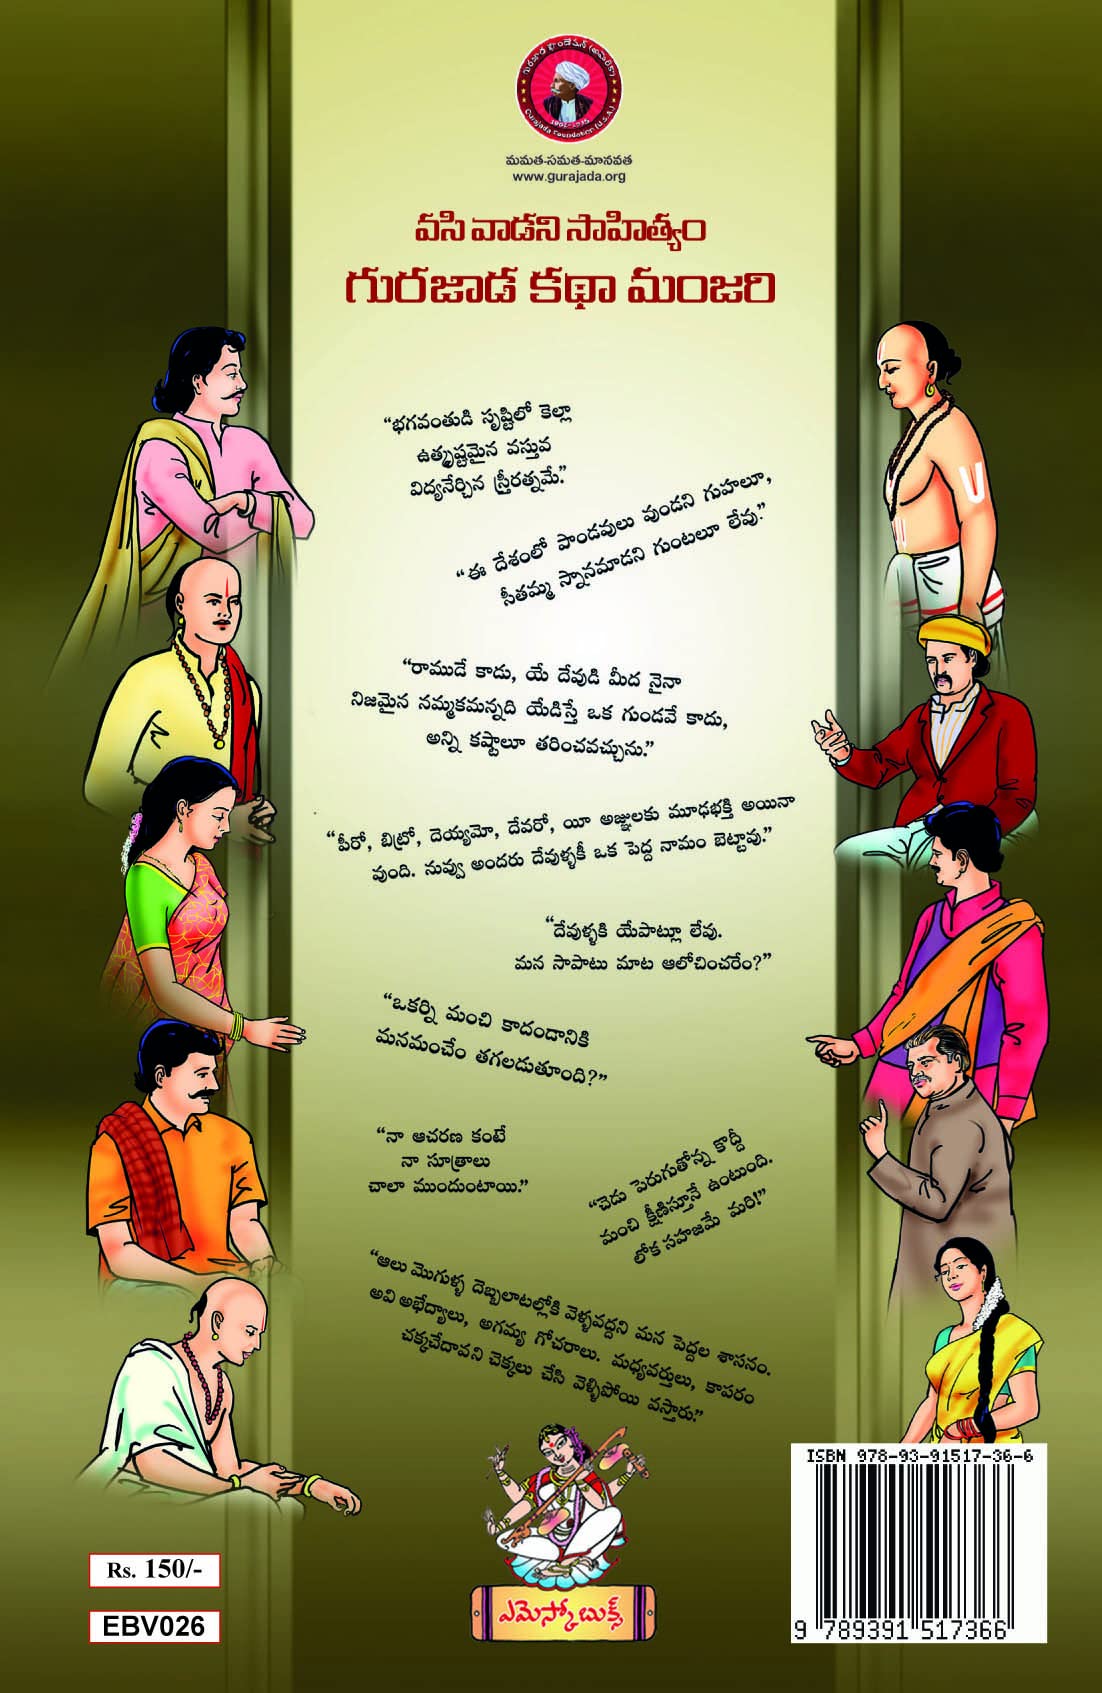 గురజాడ ఫౌండేషన్ (అమెరికా)
1862-1915
Gurajada Foundation (U.S.A.)
మమత-సమత-మానవత
www.gurajada.org
వసి వాడని సాహిత్యం
గురజాడ కథా మంజరి
“భగవంతుడి సృష్టిలో కెల్లా
ఉత్కృష్టమైన వస్తువ
విద్యనేర్చిన స్త్రీరత్నమే.”
“ఈ దేశంలో పాండవులు వుండని గుహలూ,
సీతమ్మ స్నానమాడని గుంటలూ లేవు.”
“రాముడే కాదు, యే దేవుడి మీద నైనా
నిజమైన నమ్మకమన్నది యేడిస్తే ఒక గుండవే కాదు,
అన్ని కష్టాలూ తరించవచ్చును.”
“పీరో, బిట్రో, దెయ్యమో, దేవరో, యీ అజ్ఞులకు మూఢభక్తి అయినా
వుంది. నువ్వు అందరు దేవుళ్ళకీ ఒక పెద్ద నామం బెట్టావు.”
“దేవుళ్ళకి యేపాట్లూ లేవు.
మన సాపాటు మాట ఆలోచించరేం?”
“ఒకర్ని మంచి కాదండానికి
మనమంచేం తగలడుతూంది?”
“నా ఆచరణ కంటే
నా సూత్రాలు
చాలా ముందుంటాయి.”
“చెడు పెరుగుతోన్న కొద్దీ
మంచి క్షీణిస్తూనే ఉంటుంది.
లోక సహజమే మరి!”
“ఆలు మొగుళ్ళ దెబ్బలాటల్లోకి వెళ్ళవద్దని మన పెద్దల శాసనం.
అవి అభేద్యాలు, అగమ్య గోచరాలు. మధ్యవర్తులు, కాపరం
చక్కచేదావని చెక్కలు చేసి వెళ్ళిపోయి వస్తారు.”
ఎమెస్కో బుక్స్
Rs. 150/-
EBV026
ISBN 978-93-91517-36-6
9 789391 517366